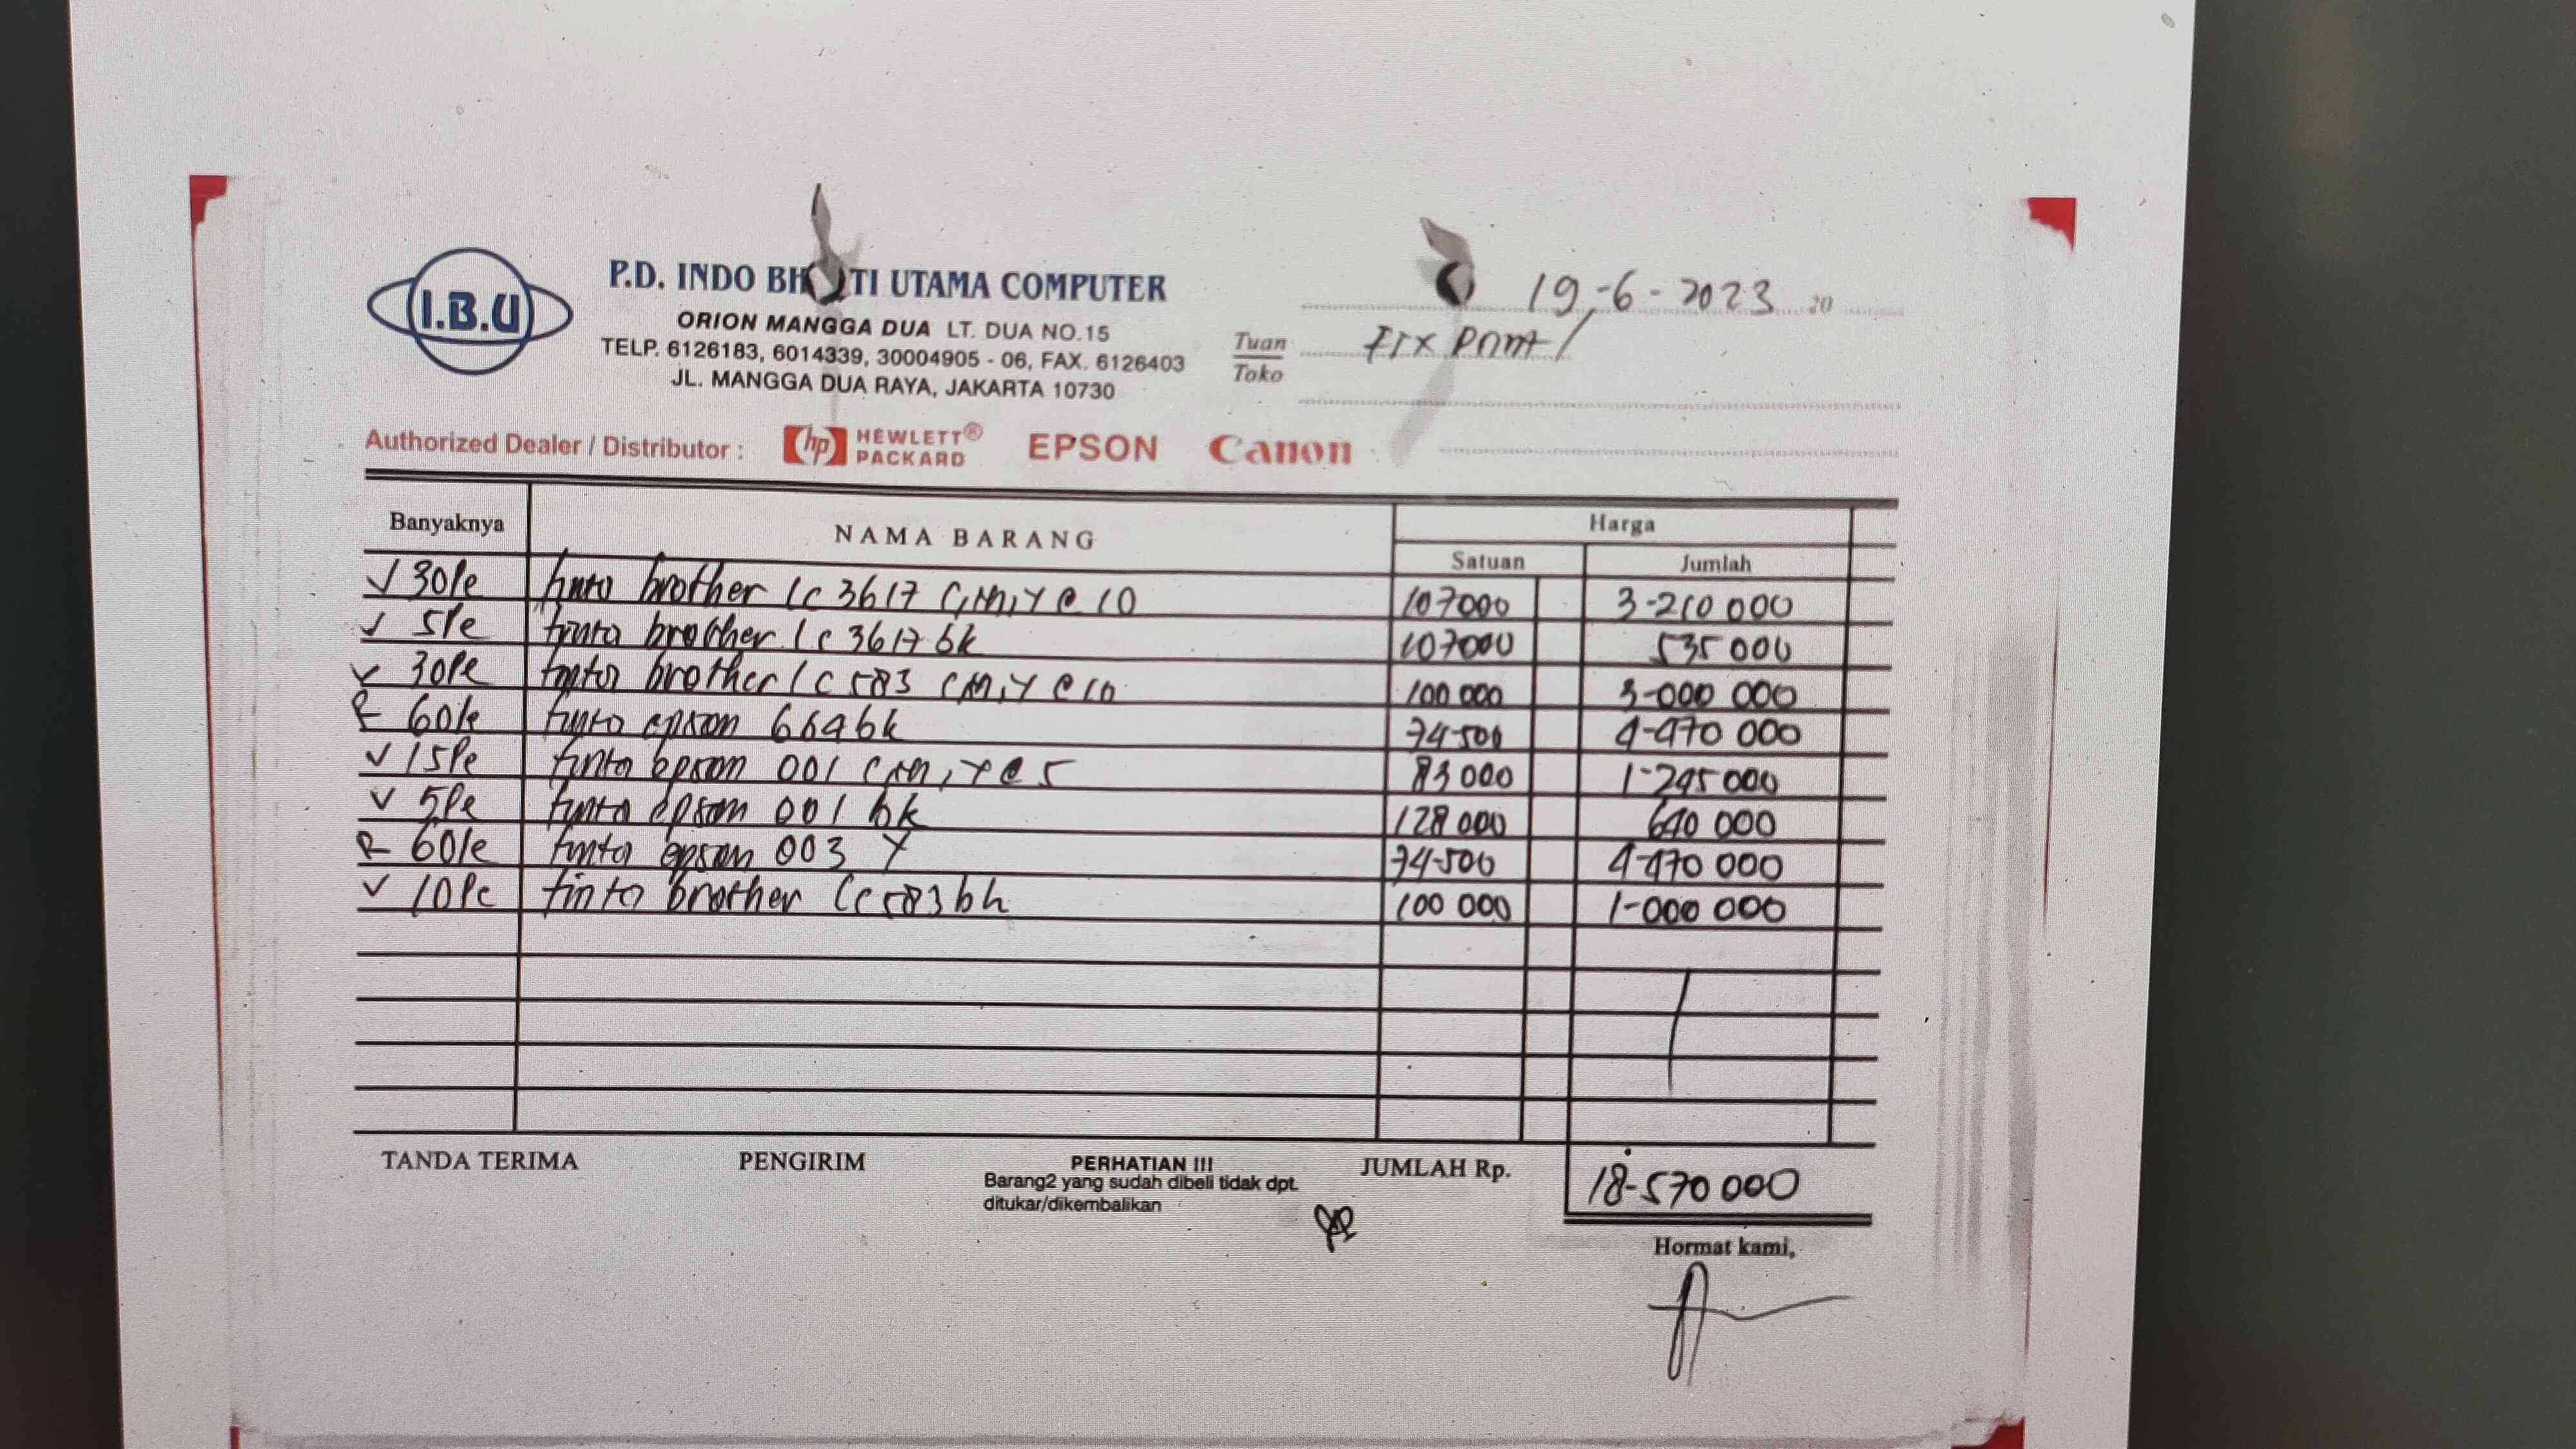 I.B.U
P.D. INDO BH TI UTAMA COMPUTER
ORION MANGGA DUA LT. DUA NO.15
TELP. 6126183, 6014339, 30004905 - 06, FAX. 6126403
JL. MANGGA DUA RAYA, JAKARTA 10730
19-6-2023 20
Tuan
Toko
Print
Authorized Dealer / Distributor : hp HEWLETT® PACKARD EPSON Canon
Banyaknya NAMA BARANG Harga
Satuan Jumlah
30 Pc tinta brother lc 3617 C,M,Y @ 10 107000 3-210 000
5 Pc tinta brother lc 3617 bk 107000 535 000
30 Pc tinta brother lc 583 C,M,Y @ 10 100 000 3-000 000
60 Pc tinta epson 664 bk 74-500 4-470 000
15 Pc tinta epson 001 C,M,Y @ 5 83 000 1-245 000
5 Pc tinta epson 001 bk 128 000 640 000
60 Pc tinta epson 003 Y 74-500 4-470 000
10 Pc tinta brother lc 583 bk 100 000 1-000 000
TANDA TERIMA PENGIRIM PERHATIAN !!! JUMLAH Rp. 18-570 000
Barang2 yang sudah dibeli tidak dpt.
ditukar/dikembalikan
Hormat kami,